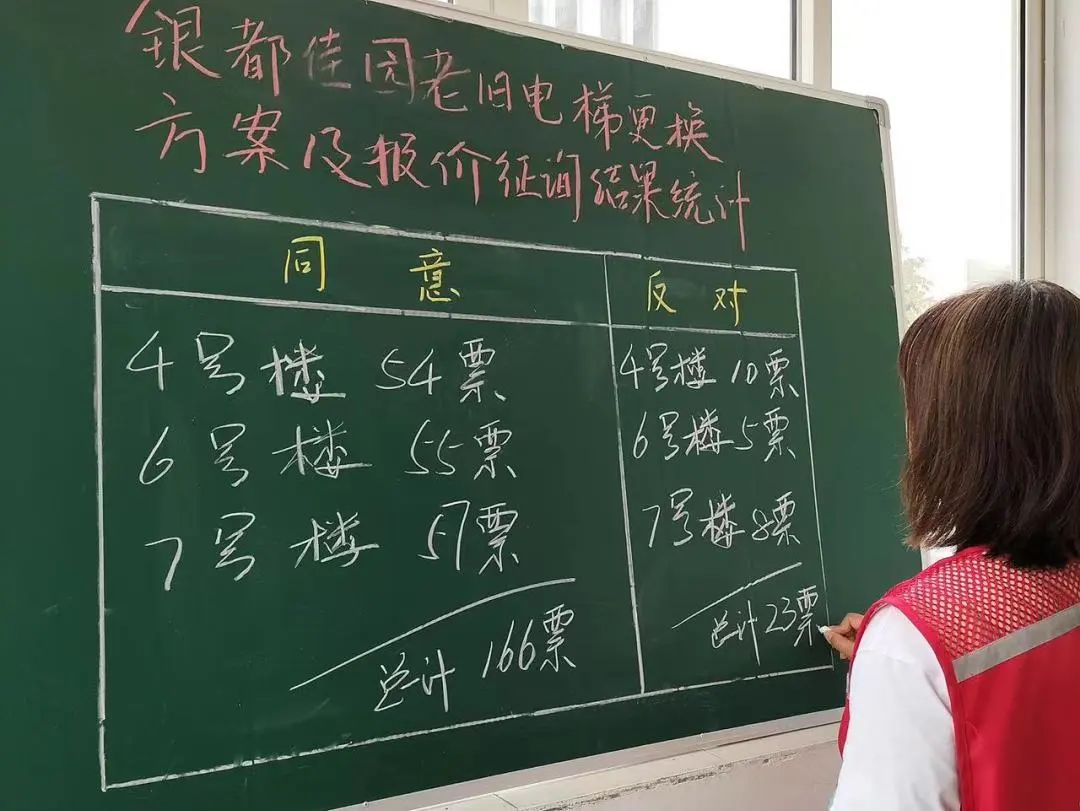 银都佳园老旧电梯更换
方案及报价征询结果统计
同意 反对
4号楼 54票 4号楼 10票
6号楼 55票 6号楼 5票
7号楼 57票 7号楼 8票
总计 166票 总计 23票